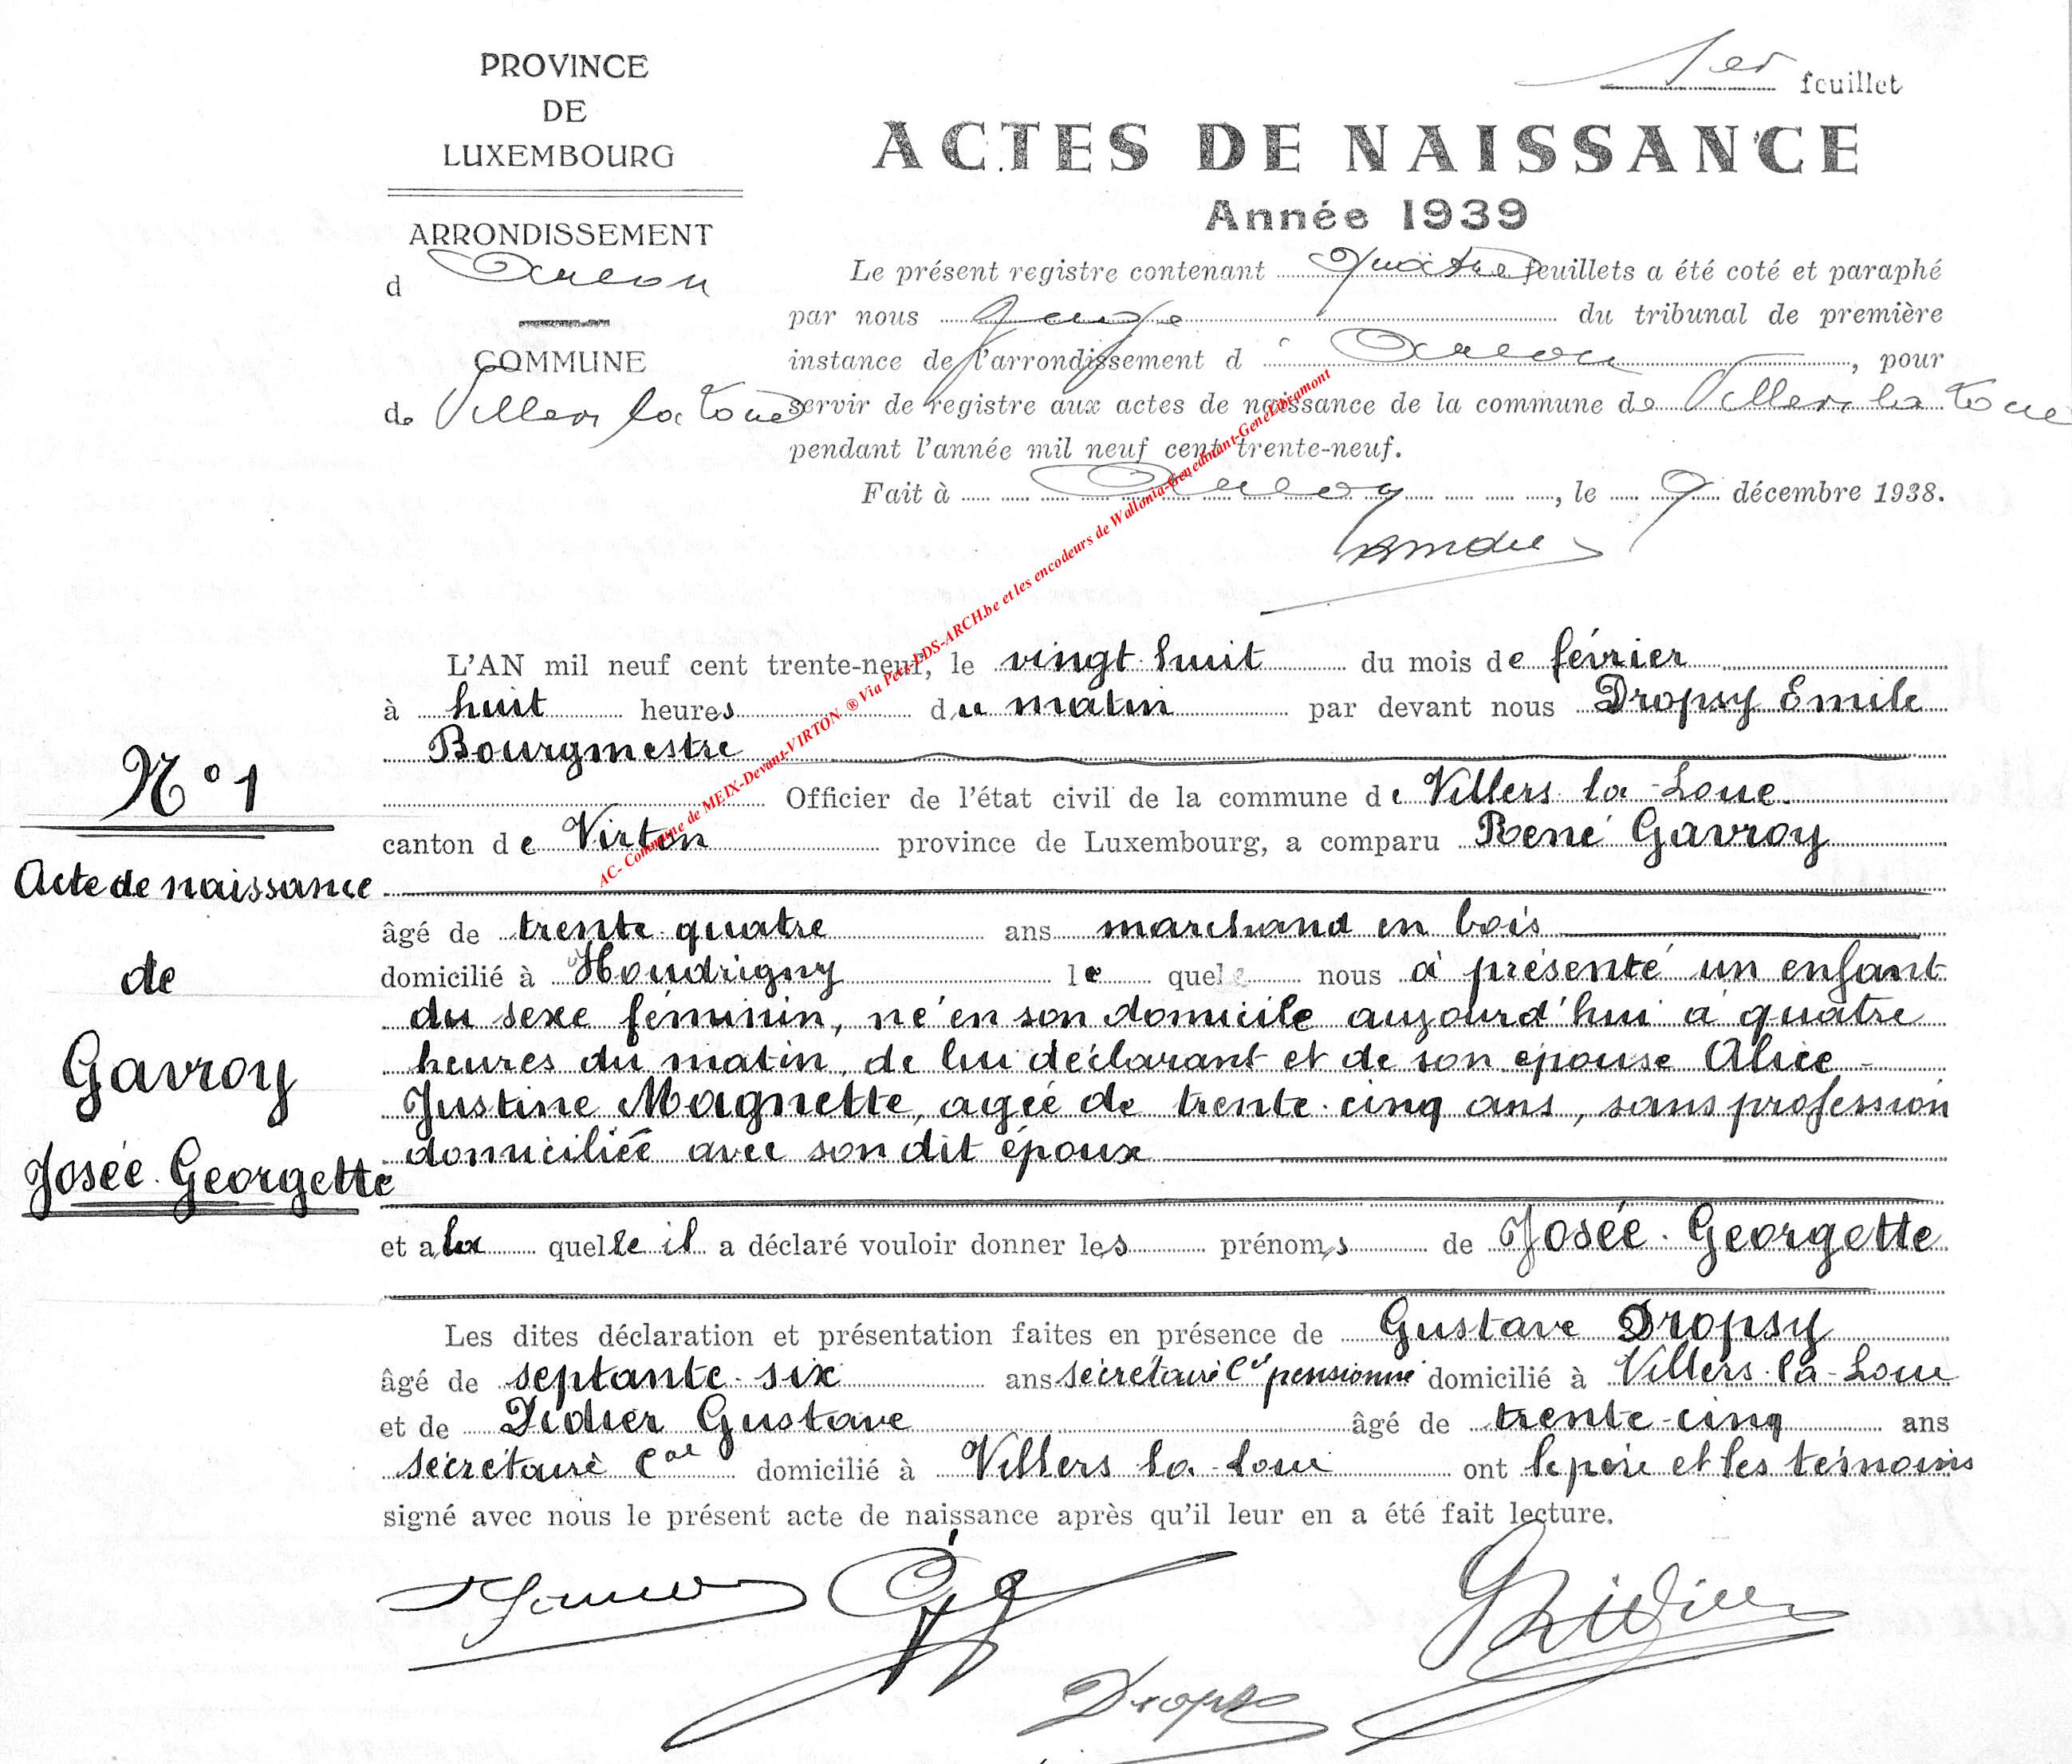 1er feuillet
PROVINCE
DE
LUXEMBOURG
ARRONDISSEMENT
d Arlon
COMMUNE
de Villers la Loue
ACTES DE NAISSANCE
Année 1939
Le présent registre contenant quatre feuillets a été coté et paraphé
par nous Juge du tribunal de première
instance de l'arrondissement d' Arlon, pour
servir de registre aux actes de naissance de la commune de Villers la Loue
pendant l'année mil neuf cent trente-neuf.
Fait à Arlon, le 9 décembre 1938.
AC- Commune de MEIX-Devant-VIRTON ® Via Pets-LDS-ARCH.be et les encodeurs de Wallonia-Genedinant-GeneLibramont
L'AN mil neuf cent trente-neuf, le vingt-huit du mois de février
à huit heures du matin par devant nous Dropsy Emile
Bourgmestre
Officier de l'état civil de la commune de Villers-la-Loue.
canton de Virton province de Luxembourg, a comparu René Gavroy
âgé de trente-quatre ans marchand en bois
domicilié à Houdrigny le quel nous a présenté un enfant
du sexe féminin, né en son domicile aujourd'hui à quatre
heures du matin, de lui déclarant et de son épouse Alice-
Justine Magnette, agée de trente-cinq ans, sans profession
domiciliée avec son dit époux
et a la quelle il a déclaré vouloir donner les prénoms de Josée-Georgette
Les dites déclaration et présentation faites en présence de Gustave Dropsy
âgé de septante-six ans secrétaire Cal pensionné domicilié à Villers-la-Loue
et de Didier Gustave âgé de trente-cinq ans
secrétaire Cal domicilié à Villers-la-Loue ont le père et les témoins
signé avec nous le présent acte de naissance après qu'il leur en a été fait lecture.
N° 1
Acte de naissance
de
Gavroy
Josée-Georgette
GDidier
Dropsy